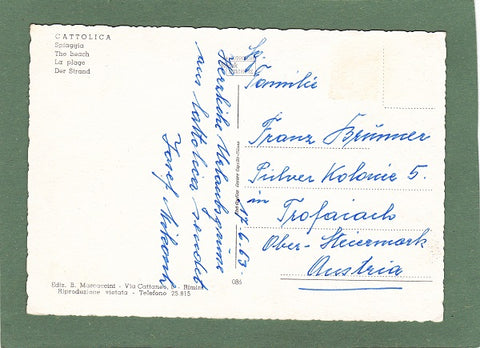 CATTOLICA
Spiaggia
The beach
La plage
Der Strand
Herrliche Urlaubsgrüsse
aus Cattolica sendet
Josef
17.6.63
Fg.
Familie
Franz Brünner
Pulver Kolonie 5.
in
Trofaiach
Ober-Steiermark
Austria
Ediz. B. Marcaccini - Via Cattaneo, - Rimini
Riproduzione vietata - Telefono 25.815
084